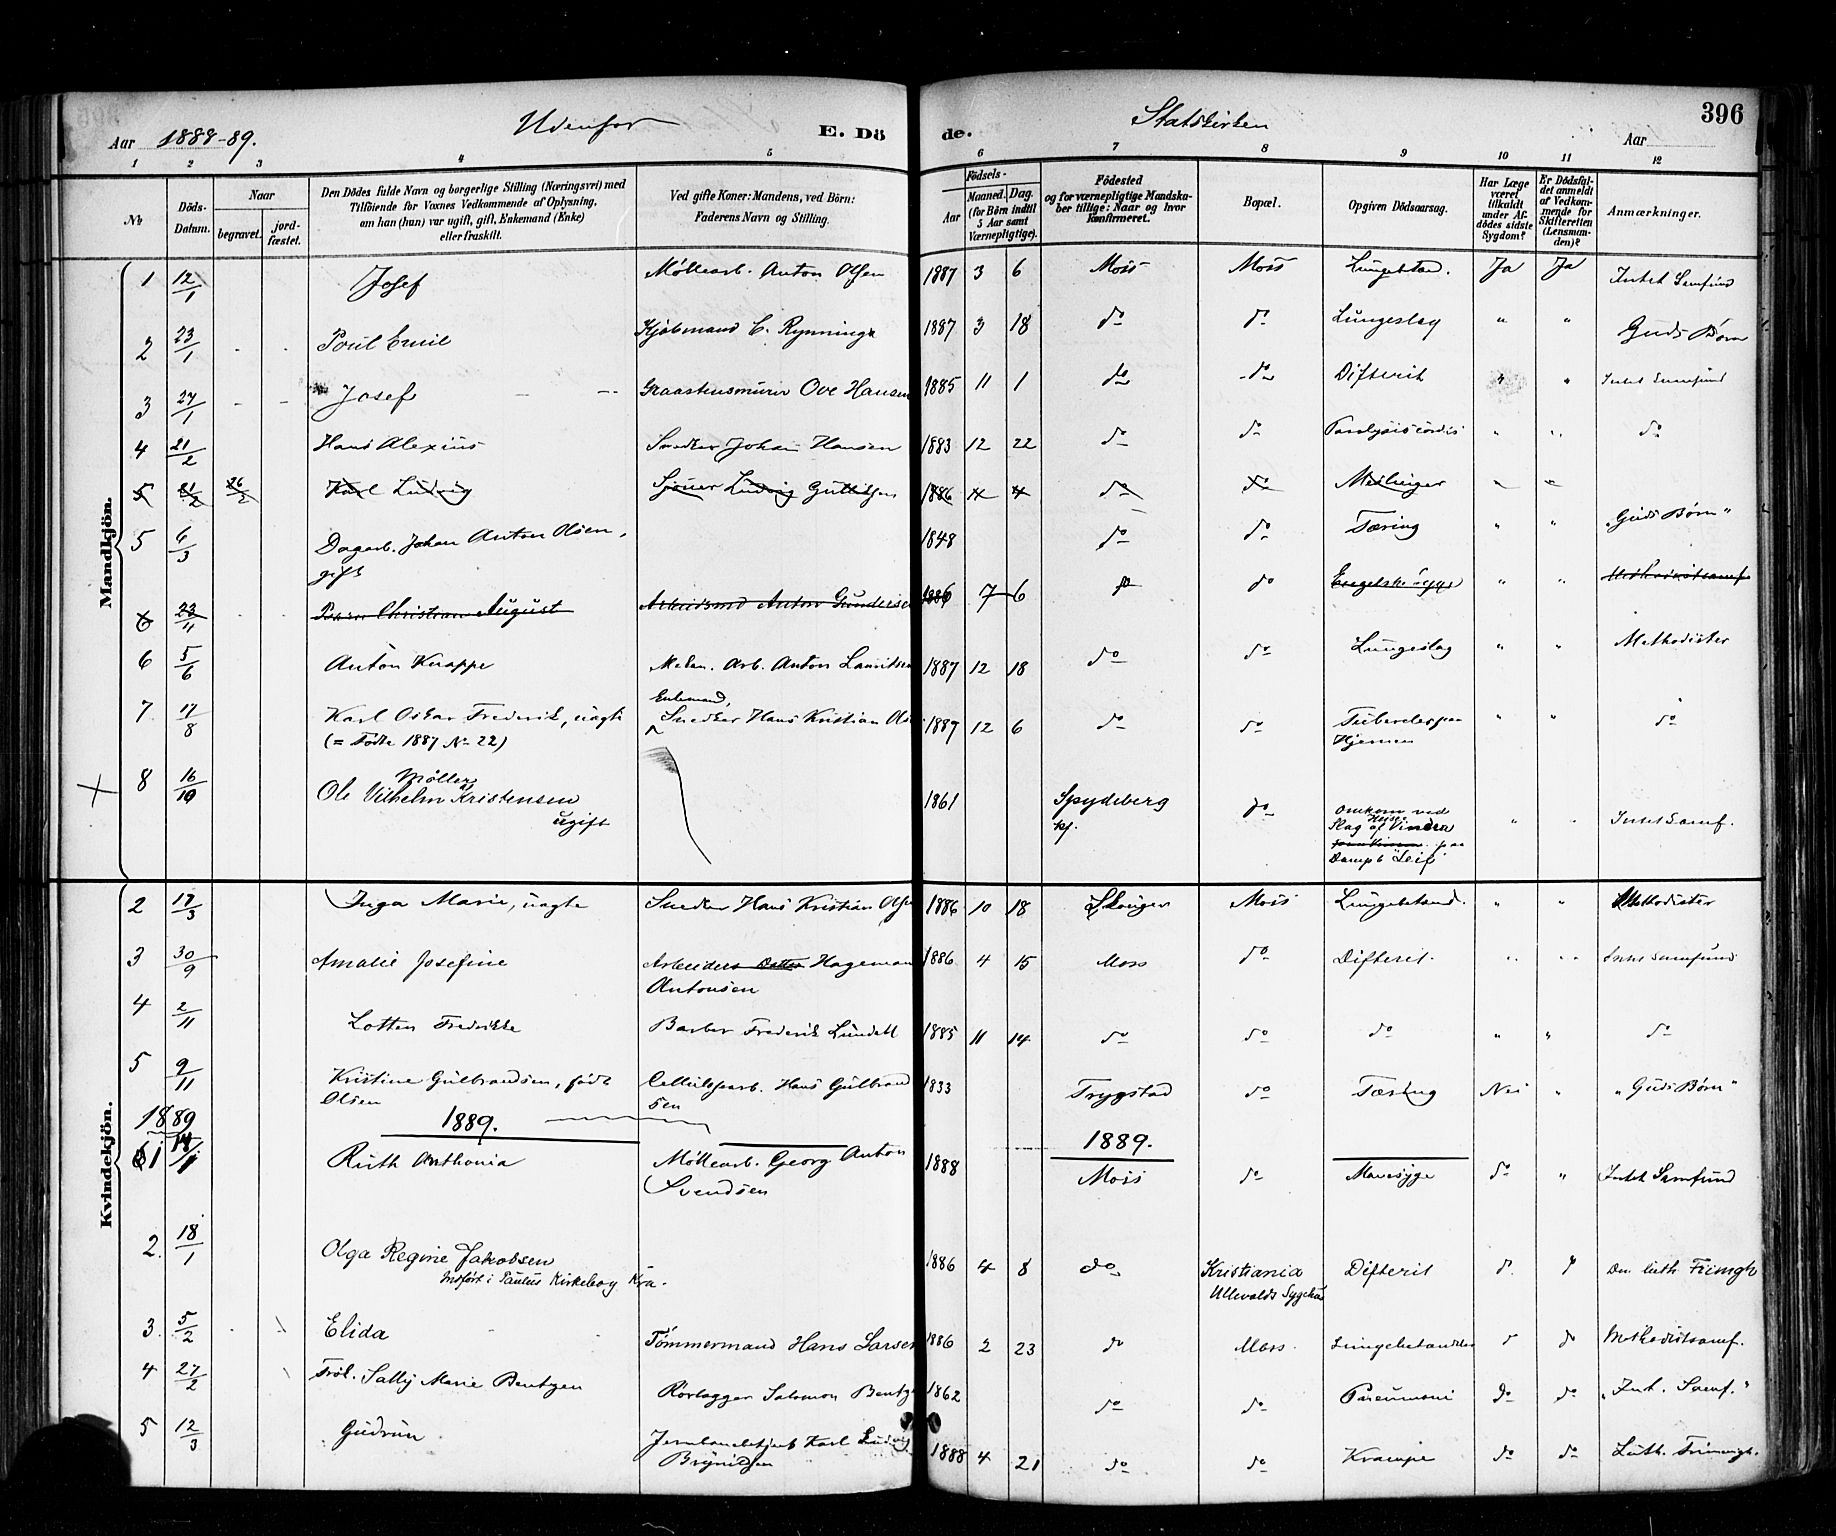 Aar 1888-89. Udenfor E. Dö de. Statskirken Aar 396
1 2 3 4 5 6 7 8 9 10 11 12
№ Döds-Datum. Naar begravet. jord-fæstet. Den Dödes fulde Navn og borgerlige Stilling (Næringsvei) med Tilföiende for Voxnes Vedkommende af Oplysning, om han (hun) var ugift, gift, Enkemand (Enke) eller fraskilt. Ved gifte Koner: Mandens, ved Börn: Faderens Navn og Stilling. Aar Födsels- Maaned. Dag. (for Börn indtil 5 Aar samt Værnepligtige). Födested og for værnepligtige Mandskaber tillige: Naar og hvor Konfirmeret. Bopæl. Opgiven Dödsaarsag. Har Læge været tilkaldt under Afdödes sidste Sygdom? Er Dödsfaldet anmeldt af Vedkommende for Skifteretten (Lensmanden)? Anmærkninger.
Mandkjön.
1 12/1 Josef Møllearb. Anton Olsen 1887 3 6 Moss Moss Lungebetænd. Ja Ja Intet Samfund
2 23/1 Poul Emil Kjøbmand C. Rynning 1887 3 18 do do Lungeslag " " Guds Børn
3 27/1 Josef Graastensmurer Ove Hansen 1885 11 1 do do Difterit " " Intet Samfund
4 21/2 Hans Alexius Snedker Johan Hansen 1883 12 22 do do Paralysis cordis " " do
5 21/2 26/2 Karl Ludvig Ludvig 1886 do do "
5 6/3 Dagarb. Johan Anton Olsen, 1848 do do Tæring " " „Guds Børn"
gift
6 23/11 Christian August Arbeidsmd Anton Gundersen 1886 7 6 do do Engelsk Syge " " Methodistsamf
6 5/6 Anton Knappe Arb. Anton Lauritsen 1887 12 18 do do Lungeslag " " Methodister
7 17/8 Karl Oskar Frederik, uægte Enkemand, Snedker Hans Kristian Ols 1887 12 6 do do Tuberkler paa " " do
(= Födte 1887 No 22) Hjernen
8 16/10 Ole Vilhelm Møller Kristensen 1861 Spydeberg do Omkom ved " " Intet Samf.
ugift Slag af Heise Vinden
paa
Dampb "Leif"
Kvindekjön.
2 17/3 Inga Marie, uægte Snedker Hans Kristian Olsen 1886 10 18 Moss Lungebetænd. " " Methodister
3 30/9 Amalie Josefine Arbeider Hageman 1886 4 15 Moss do Difterit. " " Intet Samfund
Antonsen
4 2/11 Lotten Fredrikke Barber Frederik Lundell 1885 11 14 do do do " " do
5 9/11 Kristine Gulbrandsen, født Cellulosearb. Hans Gulbrand 1833 Trygstad do Tæring Nei " „Guds Børn"
Olsen sen
1889 1889. 1889.
1 14/1 Ruth Anthonia Møllearb. Georg Anton 1888 Moss do Mavesyge do " Intet Samfund
Svendsen
2. 18/1 Olga Regine Jakobsen 1886 4 8 do Kristiania Difterit d. Den luth. Frimgh
Indført i Paulus Kirkebog Kra. Ullevolds Sygehus
3. 5/2 Elida Tömmermand Hans Larsen 1886 2 23 do Moss. Lungebetændelse do Methodistsamf.
4 27/2 Frøk. Sally Marie Bentzen Rørlægger Salomon Bentz 1862 do do Pneumoni do do „Int. Samf."
5 12/3 Gudrun Karl Ludvig 1888 4 21 do do Krampe do do Luth. Frimenigh.
Brynildsen